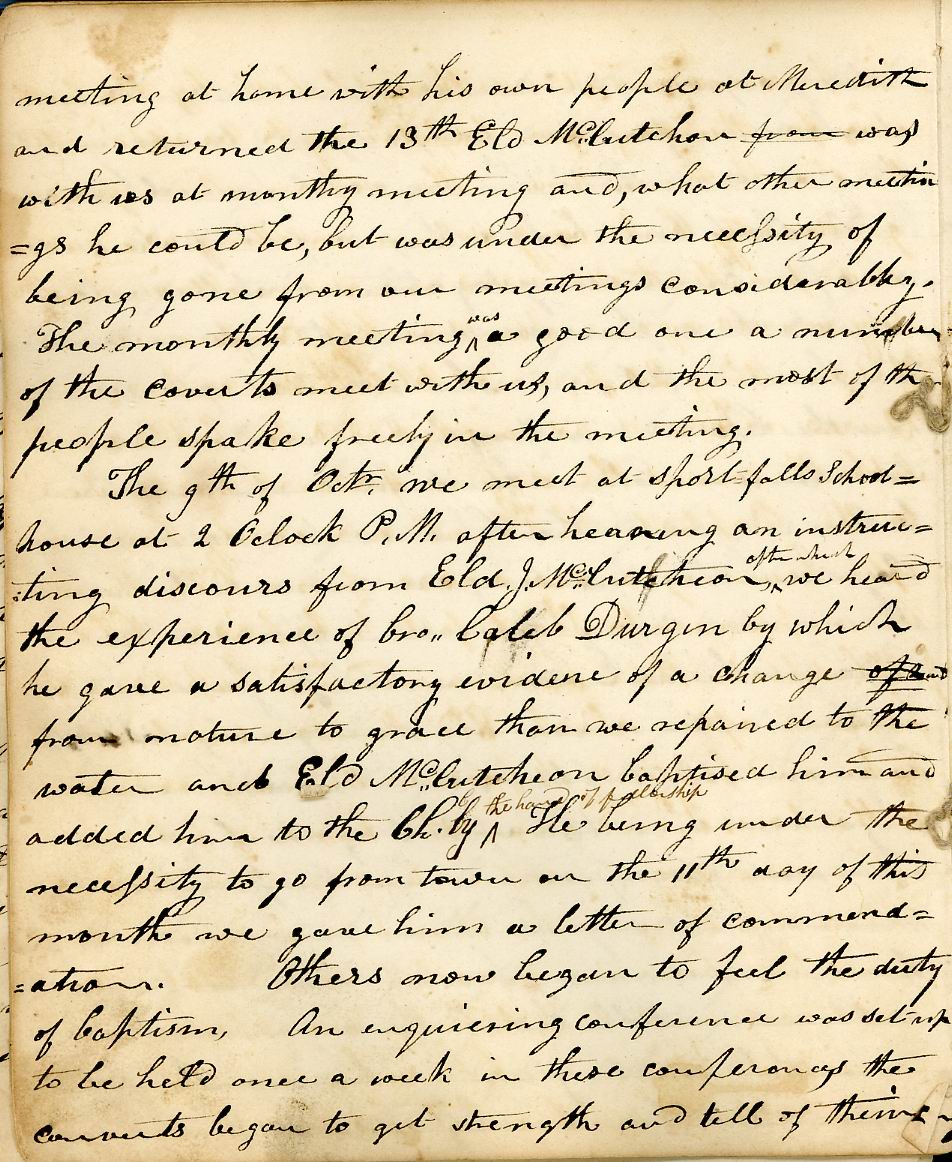 meeting at home with his own people at Meredith
and returned the 13th Eld McCutcheon from was
with us at monthy meeting and, what other meetin
=gs he could be, but was under the necessity of
being gone from our meetings considerabley.
The monthly meeting was a good one a number
of the coverts meet with us, and the most of the
people spake freely in the meeting.
The 9th of Octr. we meet at sport-falls School=
house at 2 Oclock P.M. after hearing an instruc=
=ting discours from Eld. J. McCutcheon, after which we heard
the experience of bro,, Caleb Durgin by which
he gave a satisfactory evidene of a change of
from nature to grace than we repaired to the
water and Eld McCutcheon baptised him and
added him to the Ch. by the hand of fellowship He being under the
necessity to go from town on the 11th day of this
month we gave him a letter of commend=
=ation. Others now began to feel the duty
of baptism, An enquiering conference was set up
to be held once a week in these conferences the
converts began to get strength and tell of their